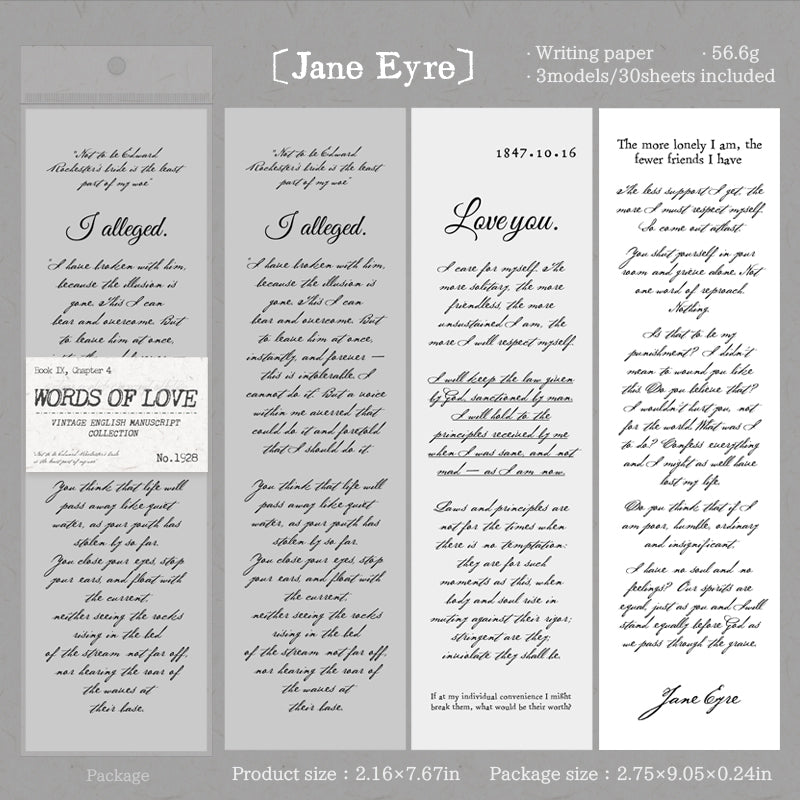 [Jane Eyre]
· Writing paper · 56.6g
· 3models/30sheets included
"Not to be Edward
Rochester's bride is the least
part of my woe"
I alleged.
"I have broken with him,
because the illusion is
gone. This I can
bear and overcome. But
to leave him at once,
Book IX, Chapter 4
WORDS OF LOVE
VINTAGE ENGLISH MANUSCRIPT
COLLECTION
"Not to be Edward Rochester's bride
is the least part of my woe"
No.1928
You think that life will
pass away like quiet
water, as your youth has
stolen by so far.
You close your eyes, stop
your ears, and float with
the current,
neither seeing the rocks
rising in the bed
of the stream not far off,
nor hearing the roar of
the waves at
their base.
"Not to be Edward
Rochester's bride is the least
part of my woe"
I alleged.
"I have broken with him,
because the illusion is
gone. This I can
bear and overcome. But
to leave him at once,
instantly, and forever —
this is intolerable. I
cannot do it. But a voice
within me averred that
could do it and foretold
that I should do it.
You think that life will
pass away like quiet
water, as your youth has
stolen by so far.
You close your eyes, stop
your ears, and float with
the current,
neither seeing the rocks
rising in the bed
of the stream not far off,
nor hearing the roar of
the waves at
their base.
1847.10.16
Love you.
I care for myself. The
more solitary, the more
friendless, the more
unsustained I am, the
more I will respect myself.
I will keep the law given
by God, sanctioned by man.
I will hold to the
principles received by me
when I was sane, and not
mad — as I am now.
Laws and principles are
not for the times when
there is no temptation:
they are for such
moments as this, when
body and soul rise in
mutiny against their rigor;
stringent are they;
inviolate they shall be.
If at my individual convenience I might
break them, what would be their worth?
The more lonely I am, the
fewer friends I have
The less support I get, the
more I must respect myself.
So come out atlast.
You shut yourself in your
room and grieve alone. Not
one word of reproach.
Nothing.
Is that to be my
punishment? I didn't
mean to wound you like
this. Do you believe that?
I wouldn't hurt you, not
for the world. What was I
to do? Confess everything
and I might as well have
lost my life.
Do you think that if I
am poor, humble, ordinary
and insignificant,
I have no soul and no
feelings? Our spirits are
equal, just as you and I will
stand equally before God as
we pass through the grave.
Jane Eyre
Package
Product size : 2.16×7.67in
Package size : 2.75×9.05×0.24in